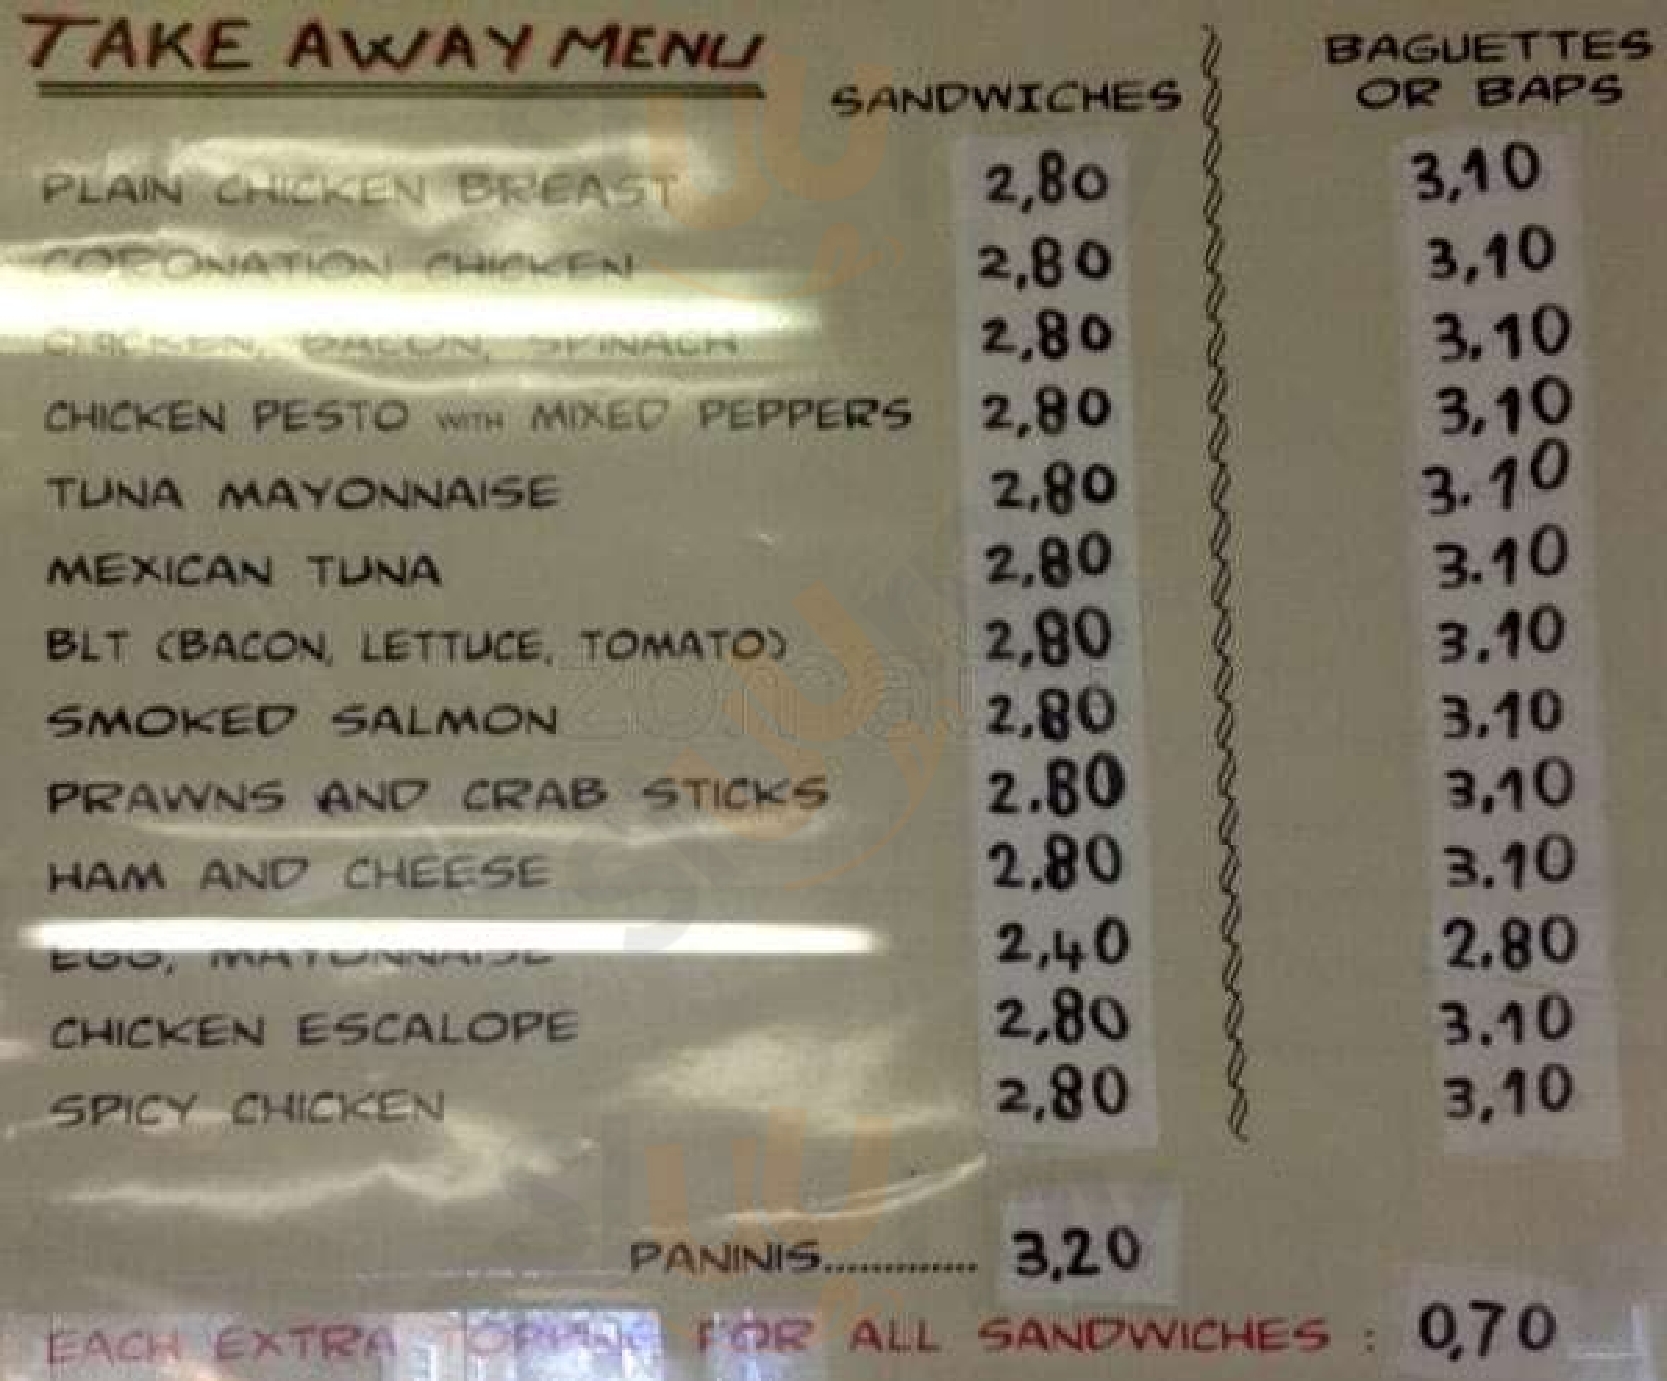 TAKE AWAY MENU
SANDWICHES
BAGUETTES
OR BAPS
PLAIN CHICKEN BREAST 2,80 3,10
CORONATION CHICKEN 2,80 3,10
CHICKEN, BACON, SPINACH 2,80 3.10
CHICKEN PESTO WITH MIXED PEPPERS 2,80 3,10
TUNA MAYONNAISE 2,80 3.10
MEXICAN TUNA 2,80 3.10
BLT (BACON, LETTUCE, TOMATO) 2,80 3.10
SMOKED SALMON 2.80 3.10
PRAWNS AND CRAB STICKS 2.80 3,10
HAM AND CHEESE 2.80 3.10
EGG, MAYONNAISE 2,40 2.80
CHICKEN ESCALOPE 2,80 3.10
SPICY CHICKEN 2,80 3,10
PANINIS............. 3,20
EACH EXTRA TOPPING FOR ALL SANDWICHES : 0,70